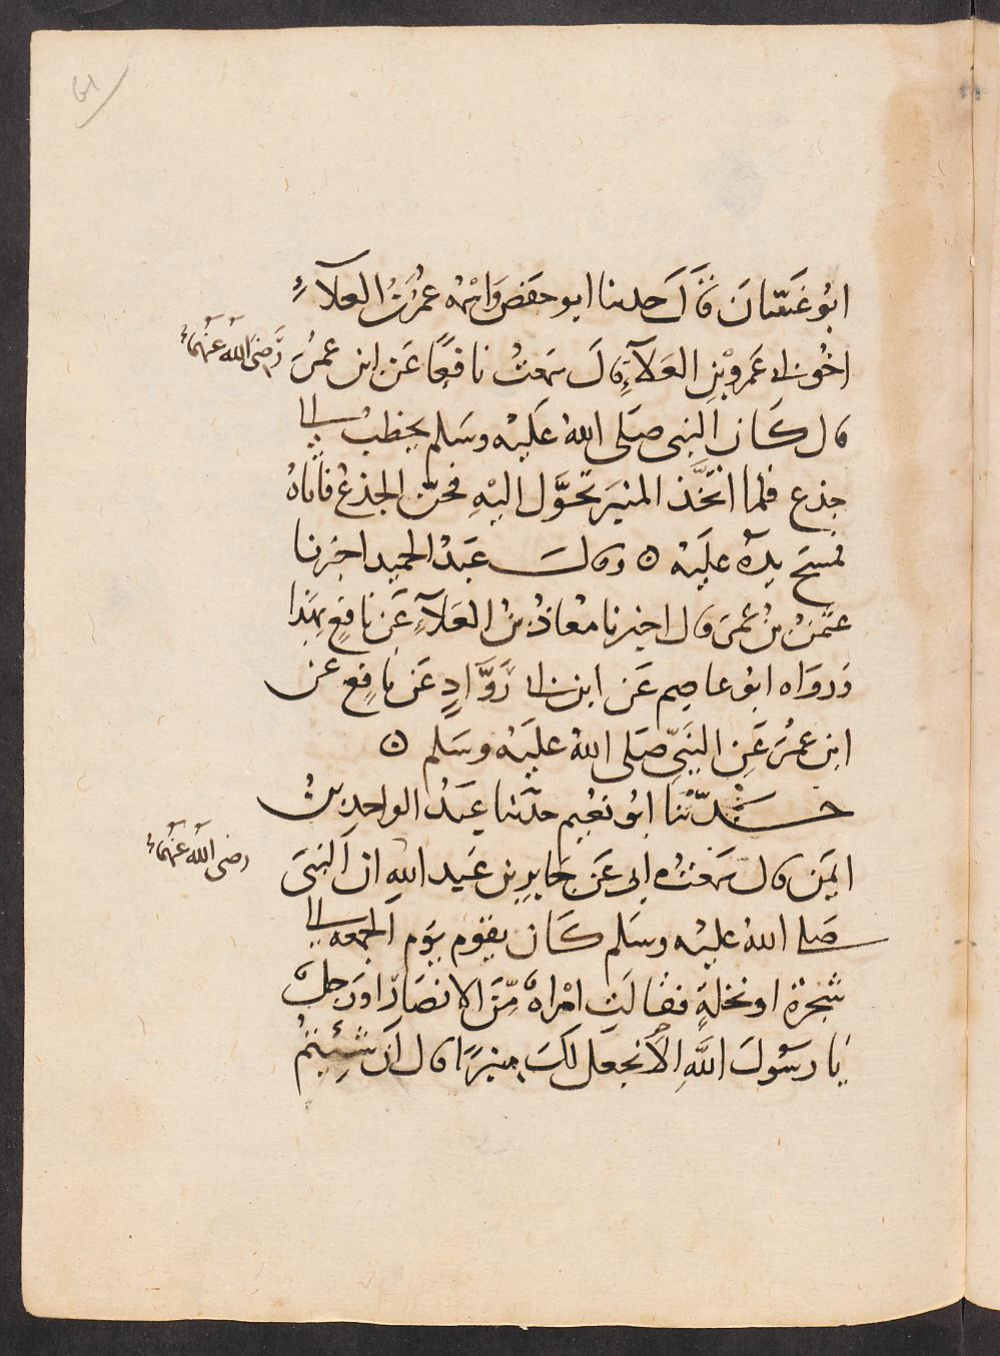 ابُو غَسّانَ قَالَ حدثنا ابو حفص وَاسْمُه عمرُ بنُ العلاءِ
اخُو ابى عَمرِو بْنِ العَلآءِ قال سَمعتُ نافِعًا عَن ابن عمُرَ رَضىَ اللّه عنهُمَا
قال كَان النبى صَلى اللهُ عَليْه وسَلم يخطبُ الى
جذع فلما اتّخَذ المنبَر تحَوَّل اليْهِ فحنّ الجذعُ فاَتاهُ
فمسَح يدهُ علَيْه ٥ وقال عَبْدُ الحميد اخبرنا
عثمنُ بنُ عُمرَ قال اخبرنا مُعَاذُ بنُ العَلآءِ عَن نافِعٍ بهَذا
وَروَاه ابُو عاصِم عَن ابن ابى رَوَّادٍ عَن نافِع عن
ابن عمُرَ عَنِ النَبىّ صَلى اللهُ علَيْه وسَلم ٥
حَدّثنَا ابُو نعُيم حدّثنا عبَدُ الواحدِ بنُ
ايمَن قال سَمعتُ ابى عَن جَابِرِ بن عَبد اللهِ ان النبىَ رضى اللّه عنهُمَا
صَلى اللهُ عليْه وسَلم كَان يقوُم يوَم الجمُعه الى
شجرَة او نخلةٍ فقالَتِ امْراةٌ مِّنَ الانصَار اوَ رَجلٌ
يَا رسُولَ اللَّهِ الاَ نجعَل لكَ منبرًا قال ان شِئتمُ